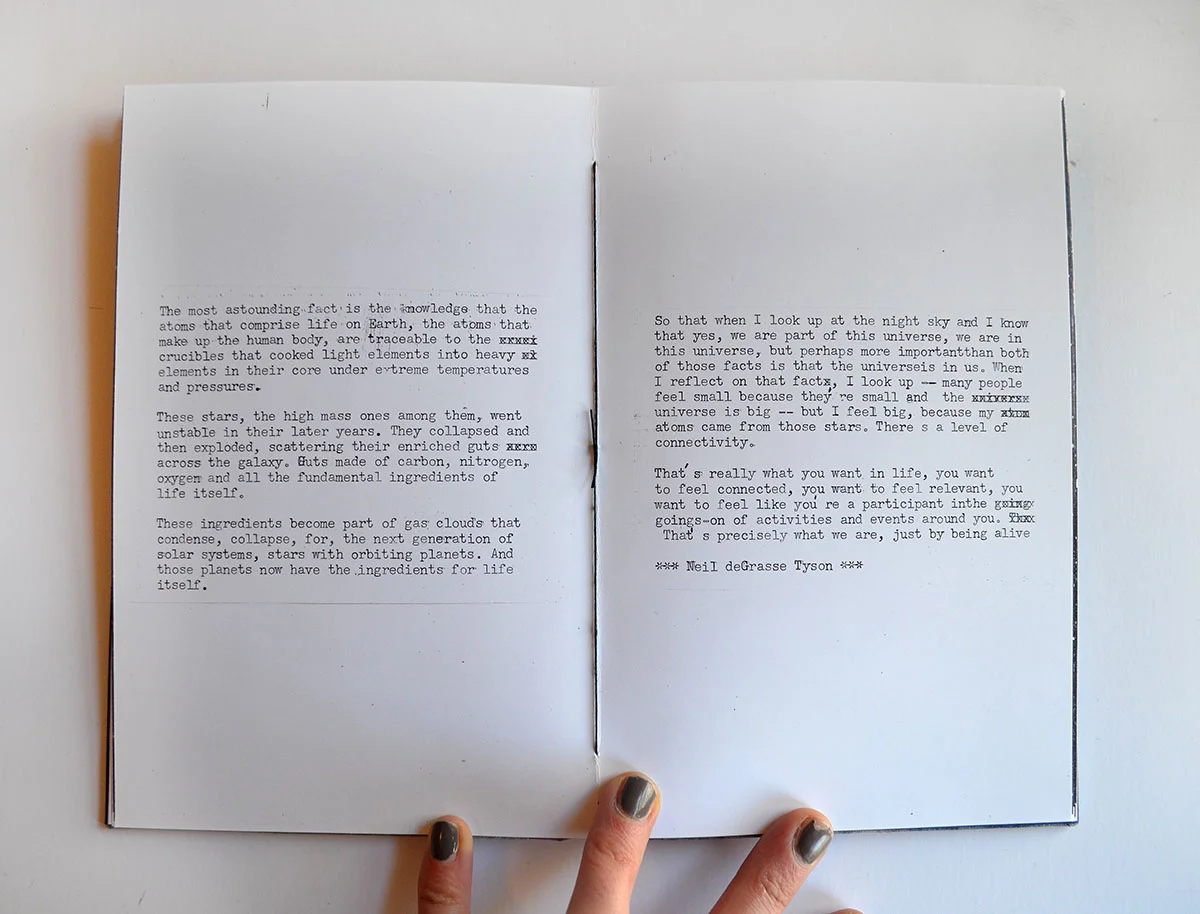 The most astounding fact is the knowledge that the
atoms that comprise life on Earth, the atoms that
make up the human body, are traceable to the
crucibles that cooked light elements into heavy
elements in their core under extreme temperatures
and pressures.
These stars, the high mass ones among them, went
unstable in their later years. They collapsed and
then exploded, scattering their enriched guts
across the galaxy. Guts made of carbon, nitrogen,
oxygen and all the fundamental ingredients of
life itself.
These ingredients become part of gas clouds that
condense, collapse, for, the next generation of
solar systems, stars with orbiting planets. And
those planets now have the ingredients for life
itself.
So that when I look up at the night sky and I know
that yes, we are part of this universe, we are in
this universe, but perhaps more importantthan both
of those facts is that the universeis in us. When
I reflect on that fact, I look up -- many people
feel small because they're small and the
universe is big -- but I feel big, because my
atoms came from those stars. There s a level of
connectivity.
That's really what you want in life, you want
to feel connected, you want to feel relevant, you
want to feel like you're a participant inthe
goings-on of activities and events around you.
That's precisely what we are, just by being alive
*** Neil deGrasse Tyson ***